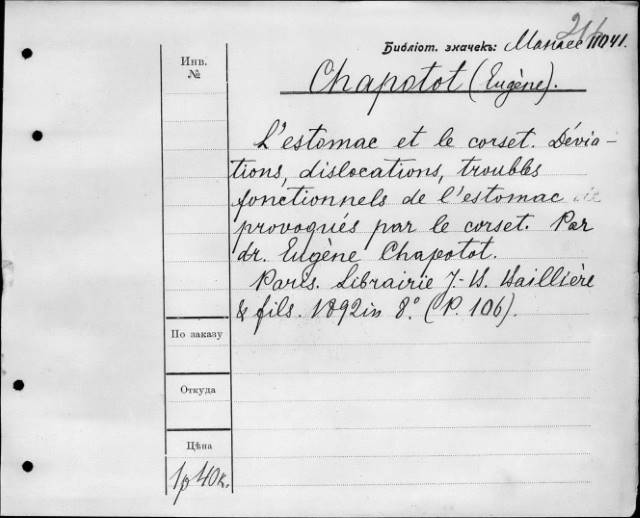 Библіот. значекъ:
Инв.
№
Chapotot (Eugène).
L'estomac et le corset. Dévia-
tions, dislocations, troubles
fonctionnels de l'estomac
provoqués par le corset. Par
dr. Eugène Chapotot.
Paris. Librairie J.-B. Baillière
& fils. 1892 in 8.° (P. 106).
По заказу
Откуда
Цѣна
1р 40к.